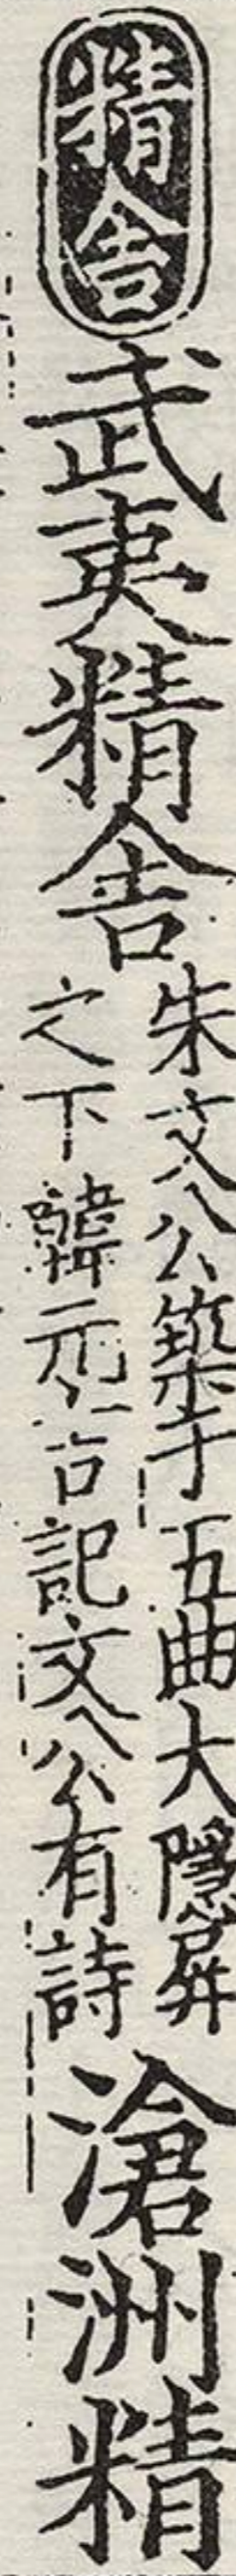 精舎
武夷精舎
朱文公築于五曲大隱屏
之下韓元吉記文公有詩
滄洲精